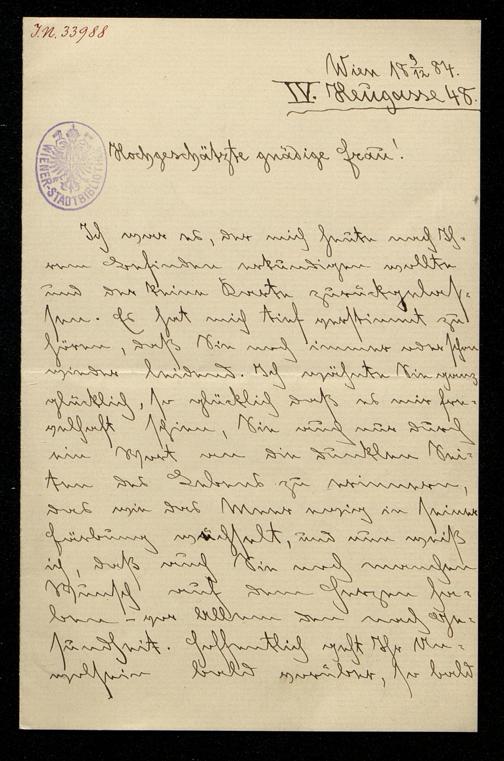 J.N. 33988
Wien 18 9/12 84.
IV. Heugasse 48.
WIENER-STADTBIBLIOTHEK
Hochgeschätzte gnädige Frau!
Ich war es, der mich heute nach Ih-
rem Befinden erkundigen wollte
und der keine Karte zurückgelas-
sen. Es hat mich tief verstimmt zu
hören, daß Sie noch immer oder schon
wieder leidend. Ich wähnte Sie ganz
glücklich, so glücklich daß es mir fre-
velhaft schien, Sie auch nur durch
ein Wort an die dunklen Sei-
ten des Lebens zu erinnern,
das wie das Meer ewig in seiner
Färbung wechselt, und nun weiß
ich, daß auch Sie noch manchen
Wunsch auf dem Herzen ha-
ben – vor allem den nach Ge-
sundheit. Hoffentlich geht Ihr Un-
wohlsein bald vorüber, so bald